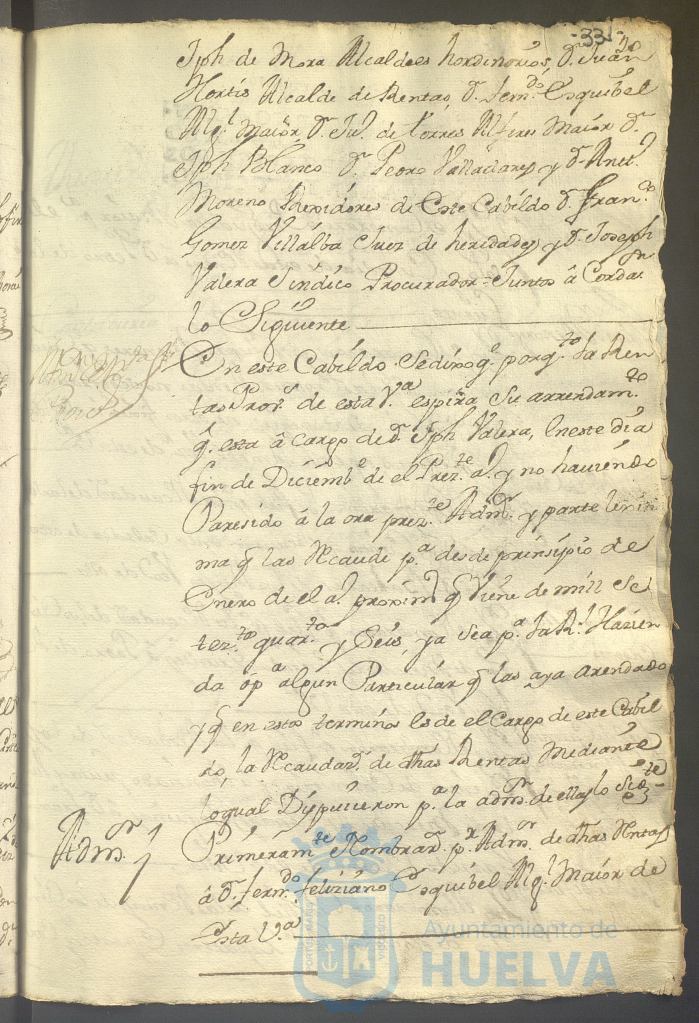 -331-
Jph de Mora Alcaldes hordinarios, Dn Juan
Hortis Alcalde de Rentas, Dn Ferndo Esquibel
Algl Maior Dn Jul de torres Alferes Maior Dn
Jph Blanco Dn Pedro Valladares y Dn Antto
Moreno Rexidores de Este Cabildo Dn Franco
Gomez Villalba Juez de heridades y Dn Joseph
Valera Sindico Procurador = Juntos â Cordarn
lo Siguiente
En este Cabildo Se dixo qe porqto la Ren
tas Provs de esta Va espira Su arrendamto
q esta â cargo de Dn Jph Valera, en este dia
fin de Diciembe de el Preste ao y no haviendo
Paresido â la ora preste Admor y parte lexiti
ma q las Rcaude pa desde prinsipio de
Enero de el ao proximo q Viene de mill Se
tezto quarta y Seis, ya Sea pa la Rl Hazien
da ô pa algun Particular q las aya arendado
y q en estos terminos es de el Cargo de este Cabil
do, la Rcaudazn de dhas Rentas Mediante
lo qual Dispusieron pa la admon de ellas lo Sigte
Admor
Primeramte Nombraron pr Admor de dhas Rentas
â Dn Ferndo feliziano Esquibel Algl Maior de
Esta Va
Ayuntamiento de
HUELVA